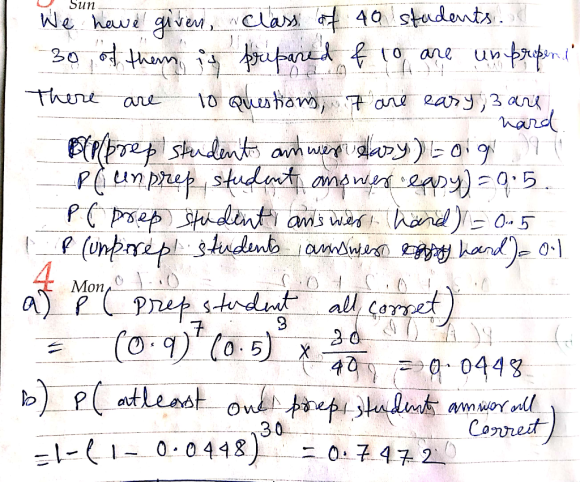 Sun
We have given, class of 40 students.
30 of them is prepared & 10 are unprepend
There are 10 Questions, 7 are easy, 3 are
hard
P(prep student answer easy) = 0.9
P(unprep student answer easy) = 0.5.
P(prep student answer hard) = 0.5
P(unprep students answer hard) = 0.1
4 Mon
a) P( prep student all correct)
= (0.9)^7 (0.5)^3 × 30/40 = 0.0448
b) P( atleast one prep student answer all
Correct)
= 1-(1- 0.0448)^30 = 0.7472